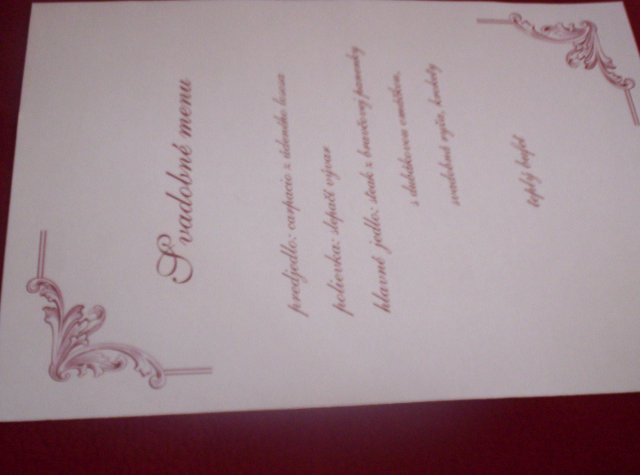 Svadobné menu
predjedlo: carpacio z údeného lososa
polievka: slepačí vývar
hlavné jedlo: steak z bravčovej panenky
s dubákovou omáčkou,
svadobná ryža, krokety
teplý bufet